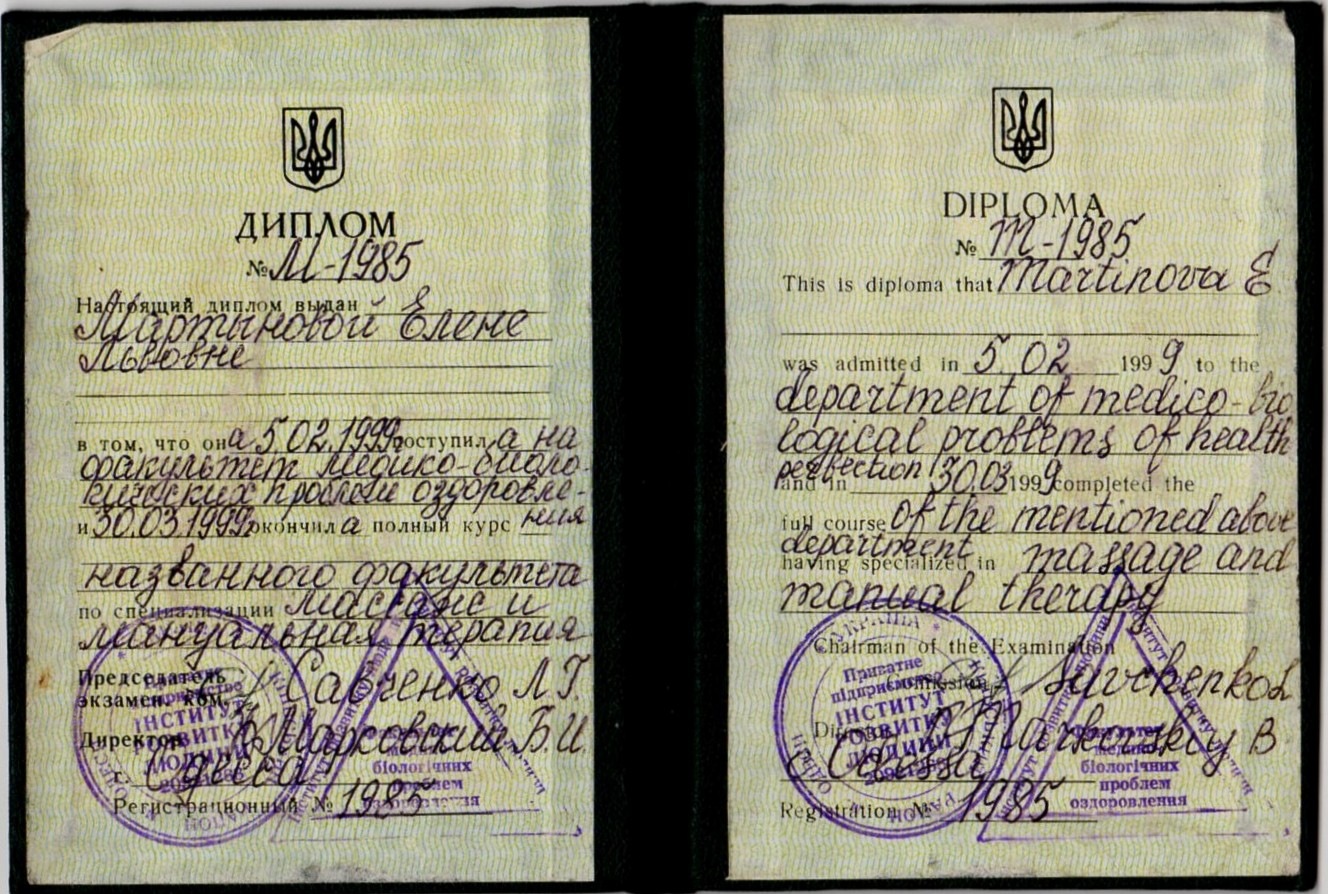 ДИПЛОМ
№ М-1985
Настоящий диплом выдан
Мартыновой Елене
Львовне
в том, что она 5.02.1999г. поступила на
факультет медико-биоло-
гических проблем оздоровле-
и 30.03.1999г. окончила полный курс ния
названного факультета
по специализации массаж и
мануальная терапия
Председатель
экзамен. ком. Савченко Л.Г.
Директор Марковский Б.И.
г. Одесса
Регистрационный № 1985
Приватне
підприємство
ІНСТИТУТ
РОЗВИТКУ
ЛЮДИНИ
біологічних
проблем
оздоровлення
DIPLOMA
№ M-1985
This is diploma that Martinova E
was admitted in 5.02 1999 to the
department of medico-bio
logical problems of health
perbection
and in 30.03 1999 completed the
full course of the mentioned above
department
having specialized in massage and
manual therapy
Chairman of the Examination
Commission Savchenko L
Director Markovskiy B
Odessa
Registration № 1985
УКРАЇНА
Приватне
підприємство
ІНСТИТУТ
РОЗВИТКУ
ЛЮДИНИ
Факультет
медико-
біологічних
проблем
оздоровлення